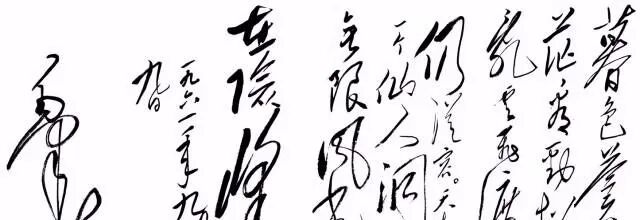 暮色苍
茫看劲松
乱云飞渡
仍從容。天
一个仙人洞
无限风光
在險峰
一九六一年九
九日